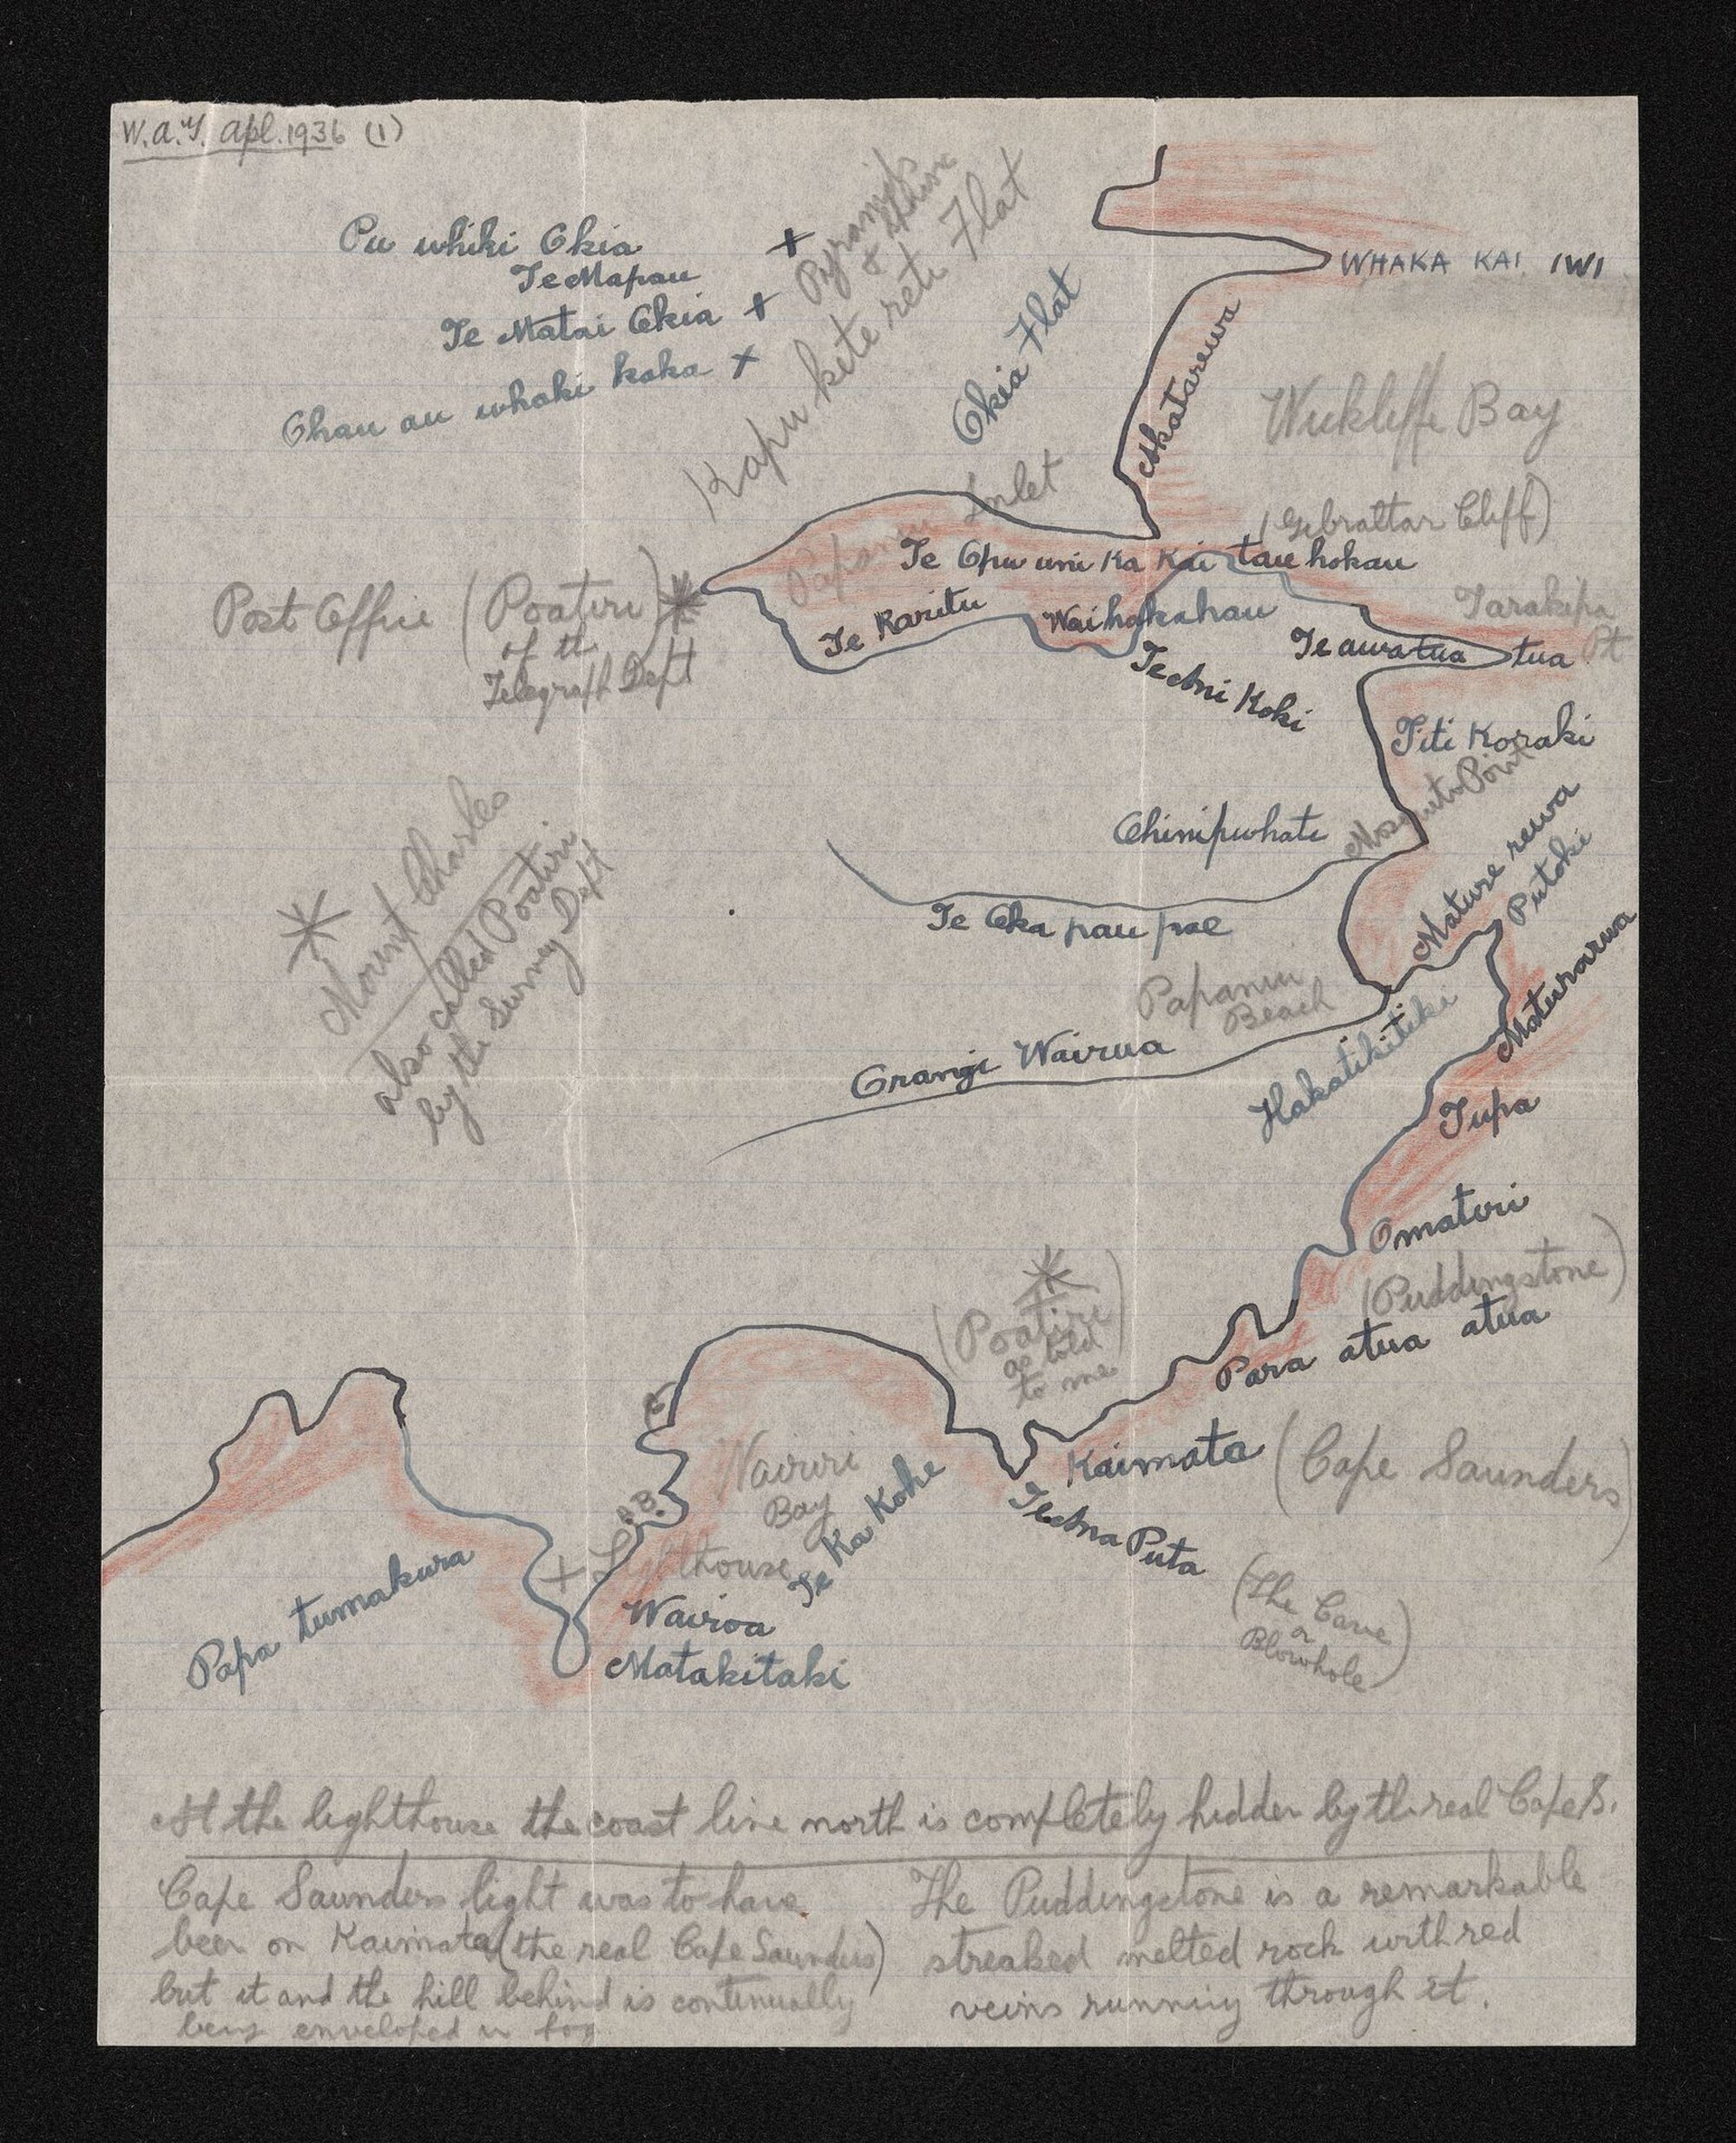 W.A.T. Apl. 1936 (1)
Pu whiki Okia +
Te Mapau
Te Matai Okia +
Ohau au whaki kaka x
Pyramids
&
Kapu kete reti Flat
Okia Flat
WHAKA KAI IWI
Akatarewa
Wickliffe Bay
(Gibraltar Cliff)
Papanui Inlet
Te Opu uni Ka Kai tau hokau
Post Office (Poatiri)
of the
Telegraph Dept
Te Karitu
Waihakahau
Te Ani Koki
Tarakipa
Pt
Te awa tua tua
Titi Koraki
Mosquito Point
Ohinipuhate
Mount Charles
also called Poatiri
by the Survey Dept
Te Oka pau pae
Mature rewa
Putoki
Maturarua
Papanui
Beach
Orangi Wairua
Hakatikitiki
Tupa
Omatiri
(Puddingstone)
Para atua atua
(Poatiri
as told
to me)
Kaimata (Cape Saunders)
Te Ana Puta
(The Cave
or
Blowhole)
Wairiri
Bay
Te Ka Kohe
+ Lighthouse
Wairoa
Matakitaki
Papa tumakura
At the lighthouse the coast line north is completely hidden by the real Cape S.
Cape Saunders light was to have
been on Kaimata (the real Cape Saunders)
but it and the hill behind is continually
being enveloped in fog
The Puddingstone is a remarkable
streaked melted rock with red
veins running through it.